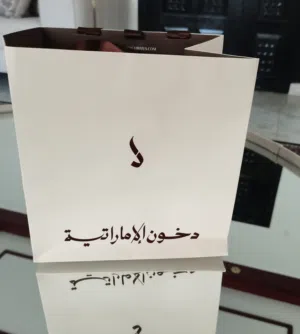 دخون الإماراتية